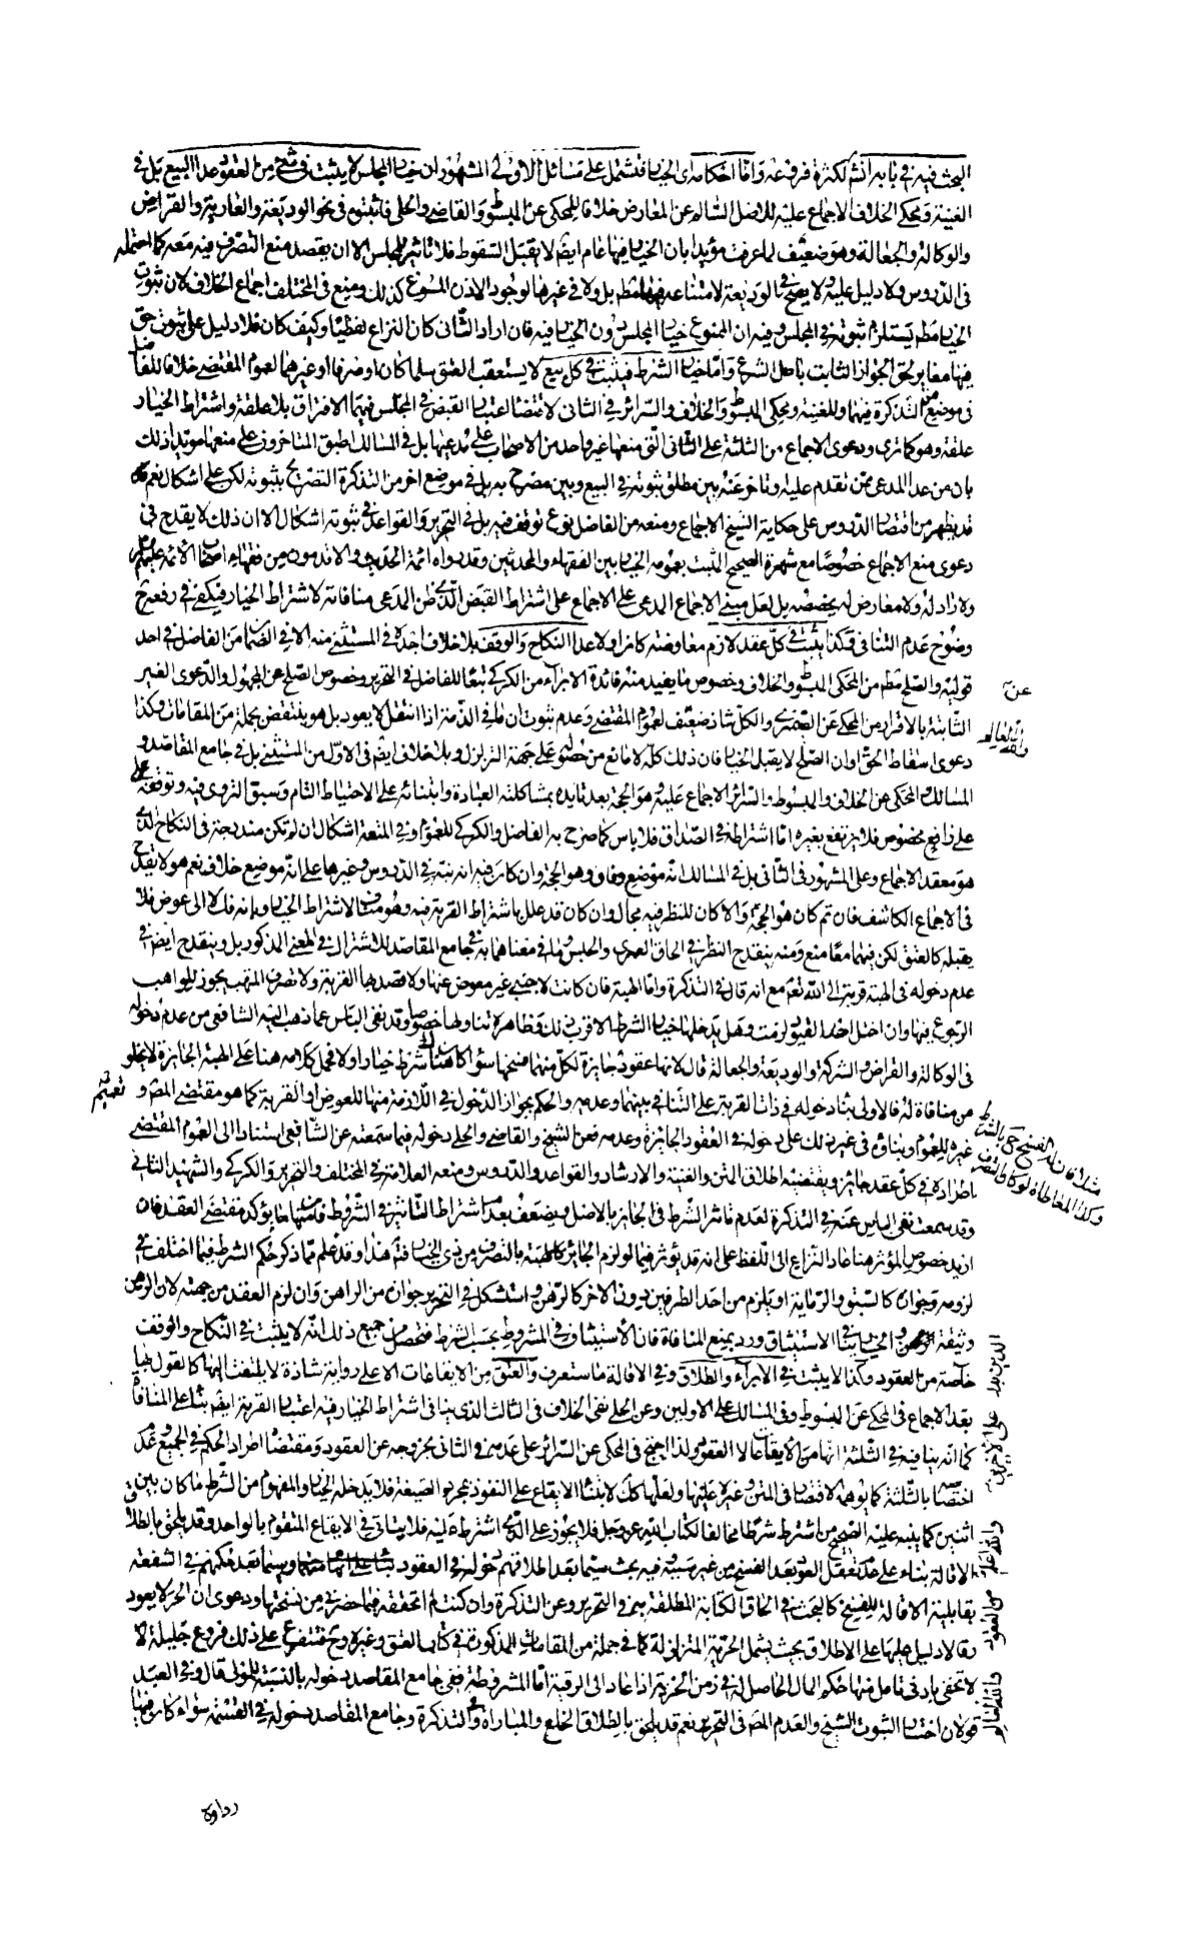 البحث فيه في بابه انشم لكثرة فروعه واما احكامه اى الخيار فتشتمل على مسائل الاولى المشهوران خيار المجلس لا يثبت فى شئ من العقود عدا البيع بل فى
الغنية ومحكى الخلاف الاجماع عليه للاصل السالم عن المعارض خلافا للمحكى عن المبسوط والقاضى والحلى فاثبتوه فى نحو الوديعة والعارية والقراض
والوكالة والجعالة وهو ضعيف لما عرفت مؤيدا بان الخيار فيها عام ايضا لا يقبل السقوط فلا تاثير للمجلس الا ان يقصد منع التصرف فيه معه كما احتمله
فى الدروس ولا دليل عليه ولا يصح فى الوديعة لامتناعه فيها مطم بل ولا فى غيرها لوجود الاذن المسوغ كذلك ومنع فى المختلف اجماع الخلاف لان ثبوت
الخيار مطم يستلزم ثبوته فى المجلس وفيه ان الممنوع خيار المجلس دون الخيار فيه فان اراد الثانى كان النزاع لفظيا وكيف كان فلا دليل على ثبوت حق
فيها مغاير لحق الجواز الثابت باصل الشرع واما خيار الشرط فيثبت فى كل بيع لا يستعقب العتق سلما كان او صرفا او غيرهما لعموم المقتضى خلافا للفاضل
فى موضع من التذكرة فيهما وللغنية ومحكى المبسوط والخلاف والسرائر فى الثانى لاقتضاء اعتبار القبض فى المجلس فيهما الافتراق بلا علقة واشتراط الخيار
علقة وهو كما ترى ودعوى الاجماع من الثلثة على الثانى التى منعها غير واحد من الاصحاب على مدعيها بل فى المسالك اطبق المتاخرون على منعها مؤيدا ذلك
بان من عدا المدعى ممن تقدم عليه وتاخر عنه بين مطلق ثبوته فى البيع وبين مصرح به بل فى موضع اخر من التذكرة التصريح بثبوته لكن على اشكال نعم
قد يظهر من اقتصار الدروس على حكاية الشيخ الاجماع ومنعه من الفاضل نوع توقف فيه بل فى التحرير والقواعد فى ثبوته اشكال الا ان ذلك لا يقدح فى
دعوى منع الاجماع خصوصا مع شهرة الصحيح المثبت بعمومه الخيار بين الفقهاء والمحدثين وقد رواه ائمة الحديث والاقدمون من فقهاء اصحاب الائمة عليهم السلام
ولا راد له ولا معارض له يخصصه بل لعل مبنى الاجماع المدعى على الاجماع على اشتراط القبض الذى ظن المدعى منافاته لاشتراط الخيار فيكفى فى رفعه ح
وضوح عدم التنافى وكذا يثبت فى كل عقد لازم معاوضة كان او لا عدا النكاح والوقف بلا خلاف اجده فى المستثنى منه الا فى الضمان من الفاضل فى احد
قوليه والصلح مطم من المحكى المبسوط والخلاف وخصوص ما يفيد منه فائدة الابراء من الكركى تبعا للفاضل فى التحرير وخصوص الصلح عن المجهول والدعوى الغير
الثابتة بالاقرار من المحكى عن الصيمرى والكل شاذ ضعيف لعموم المقتضى وعدم ثبوت ان ما فى الذمة اذا انتقل لا يعود بل هو ينتقض بجملة من المقامات وكذا
دعوى اسقاط الحق او ان الصلح لا يقبل الخيار فان ذلك كله لا مانع من حصوله على جهة التزلزل وبلا خلاف ايضا فى الاول من المستثنى بل فى جامع المقاصد و
المسالك والمحكى عن الخلاف والمبسوط والسرائر الاجماع عليه وهو الحجة بعد تايده بمشاكلته العبادة وابتنائه على الاحتياط التام وسبق التروى فيه وتوقفه على
على رافع مخصوص فلا يرتفع بغيره اما اشتراطه فى الصداق فلا باس كما صرح به الفاضل والكركى للعموم وفى المتعة اشكال ان لم تكن مندرجة فى النكاح الذى
هو معقد الاجماع وعلى المشهور فى الثانى بل فى المسالك انه موضع وفاق وهو الحجة وان كان فيه انه نبه فى الدروس وغيرها على انه موضع خلاف نعم هو لا يقدح
فى الاجماع الكاشف فان تم كان هو الحجة والا كان للنظر فيه مجال وان كان قد علل باشتراط القربة فيه وهو مناف لاشتراط الخيار وبانه فك لا الى عوض فلا
يقبله كالعتق لكن فيهما معا منع ومنه ينقدح النظر فى الحاق العمرى والحبس وما فى معناهما به فى جامع المقاصد للاشتراك فى المعنى المذكور بل وينقدح ايضا فى
عدم دخوله فى الهبة قربة الى الله تعم مع انه قال فى التذكرة واما الهبة فان كانت لاجنبى غير معوض عنها ولا قصد بها القربة ولا تصرف المتهب يجوز للواهب
الرجوع فيها وان اختل احد القيود لزمت وهل يدخلها خيار الشرط الاقرب ذلك وظاهره تناولها خصوصا وقد نفى الباس عما ذهب اليه الشافعى من عدم دخوله
فى الوكالة والقراض والشركة والوديعة والجعالة قال لانها عقود جايزة لكل منهما فسخها سواء كان هناك شرط خيار او لا فحمل كلامه هنا على الهبة الجايزة لا يخلو
من منافاة له فالاولى بناء دخوله فى ذات القربة على التنافى بينهما وعدمه والحكم بجواز الدخول فى اللازمة منها للعوض او القربة كما هو مقتضى المصنف و
غيره للعموم وبناؤه فى غير ذلك على دخوله فى العقود الجايزة وعدمه فعن الشيخ والقاضى والحلى دخوله فيما سمعته عن الشافعى استنادا الى العموم المقتضى
باطراده فى كل عقد جائز ويقتضيه اطلاق المتن والغنية والارشاد والقواعد والدروس ومنعه العلامة فى المختلف والتحرير والكركى والشهيد الثانى
وقد سمعت نفى الباس عنه فى التذكرة لعدم تاثر الشرط فى الجايز بالاصل ويضعف بعد اشتراط التاثير فى الشروط فمنها ما يؤكد مقتضى العقد فان
اريد خصوص المؤثر منها عاد النزاع الى اللفظ على انه قد يؤثر فيما لو لزم الجائز كالهبة بالتصرف من ذى الخيار فتم هذا وقد علم مما ذكر حكم الشرط فيما اختلف فى
لزومه وجوازه كالسبق والرماية او يلزم من احد الطرفين دون الاخر كالرهن واستشكل فى التحرير جوازه من الراهن وان لزم العقد من جهته لان الرهن
وثيقة والخيار ينافى الاستيثاق ورد بمنع المنافاة فان الاستيثاق فى المشروط بحسب الشرط فتحصل من جميع ذلك انه لا يثبت فى النكاح والوقف
خاصة من العقود وكذا لا يثبت فى الابراء والطلاق وفى الاقالة ما ستعرف والعتق من الايقاعات الا على رواية شاذة لا يلتفت اليها كالقول بها
بعد الاجماع فى المحكى عن المبسوط وفى المسالك على الاولين وعن الحلى نفى الخلاف فى الثالث الذى ينافى اشتراط الخيار فيه اعتبار القربة ايضا بناء على المنافاة
كما انه ينافيه فى الثلثة انها من الايقاعات لا العقود ولذا احتج فى المحكى عن السرائر على عدمه فى الثانى بخروجه عن العقود ومقتضاه اطراد الحكم فى الجميع وعدم
اختصاصه بالثلثة كما يوهمه الاقتصار فى المتن وغيره عليها ولعله كك لابتناء الايقاع على النفوذ بمجرد الصيغة فلا يدخله الخيار والمفهوم من الشرط ما كان بين
اثنين كما ينبه عليه الصحيح من اشترط شرطا مخالفا لكتاب الله عز وجل فلا يجوز على الذى اشترط عليه فلا يتاتى فى الايقاع المتقوم بالواحد وقد يلحق بالطلاق
الاقالة بناء على عدم تعقل العود بعد الفسخ من غير سبب وفيه بحث سيما بعد اطلاقهم دخوله فى العقود وسيما بعد حكمهم فى الشفعة
بقابلية الاقالة للفسخ كالبحث فى الحاق الكتابة المطلقة بهم والتحرير وعن التذكرة وان كنت لم اتحققه فيما حضرنى من نسختها ودعوى ان الحر لا يعود
رقا لا دليل عليها على الاطلاق بحيث يشمل الحرية المتزلزلة كما فى جملة من المقامات المذكورة فى كتاب العتق وغيره وح فتفرع على ذلك فروع جليلة لا
لا تخفى بادنى تامل منها حكم المال الحاصل له فى زمن الحرية اذا عاد الى الرقية اما المشروطة ففى جامع المقاصد دخوله بالنسبة للمولى قال وفى العبد
قولان اختار الثبوت الشيخ والعدم المصنف فى التحرير نعم قد يلحق بالطلاق الخلع والمباراة والتذكرة وجامع المقاصد دخوله فى القسمة سواء كان فيها
عن
والله العالم
تعميم
مثلا فان له الفسخ ح بالشرط
وكذا المعاطاة لو كا والتصرف
رد اوة